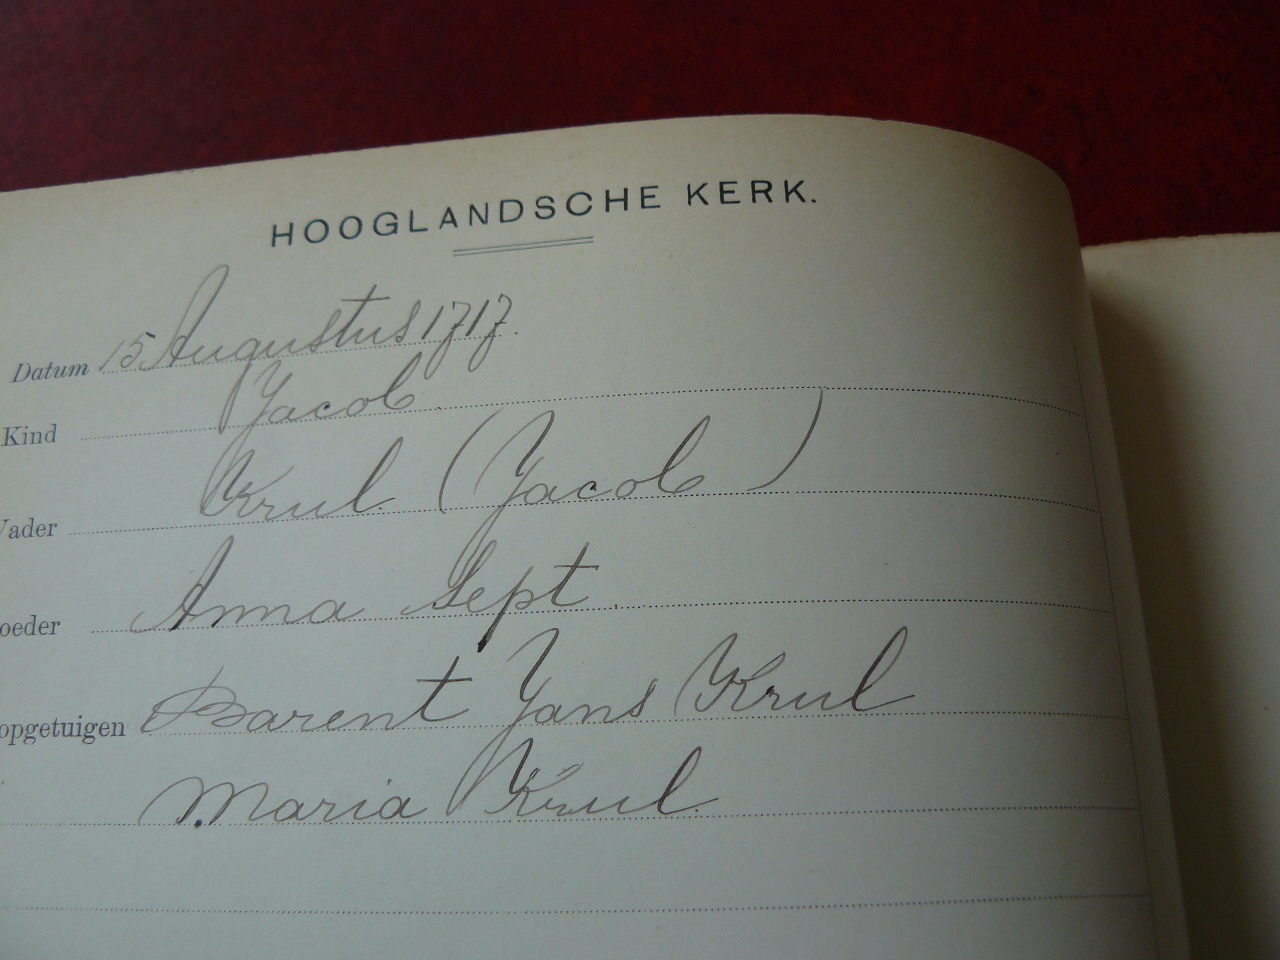 HOOGLANDSCHE KERK.
Datum 15 Augustus 1717.
Kind Jacob.
Vader Krul (Jacob)
oeder Anna Sept.
opgetuigen Barent Jans Krul
Maria Krul.